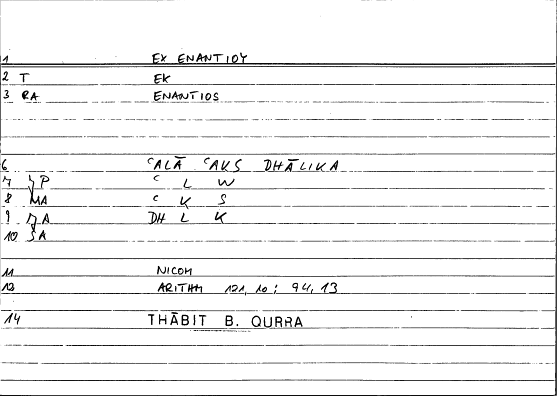 1 EX ENANTIOY
2 T EK
3 RA ENANTIOS
6 ʿALĀ ʿAKS DHĀLIKA
7 JP ʿ L W
8 MA ʿ K S
9 MA DH L K
10 SA
11 NICOM
13 ARITHM 121, 10 : 94, 13
14 THĀBIT B. QURRA